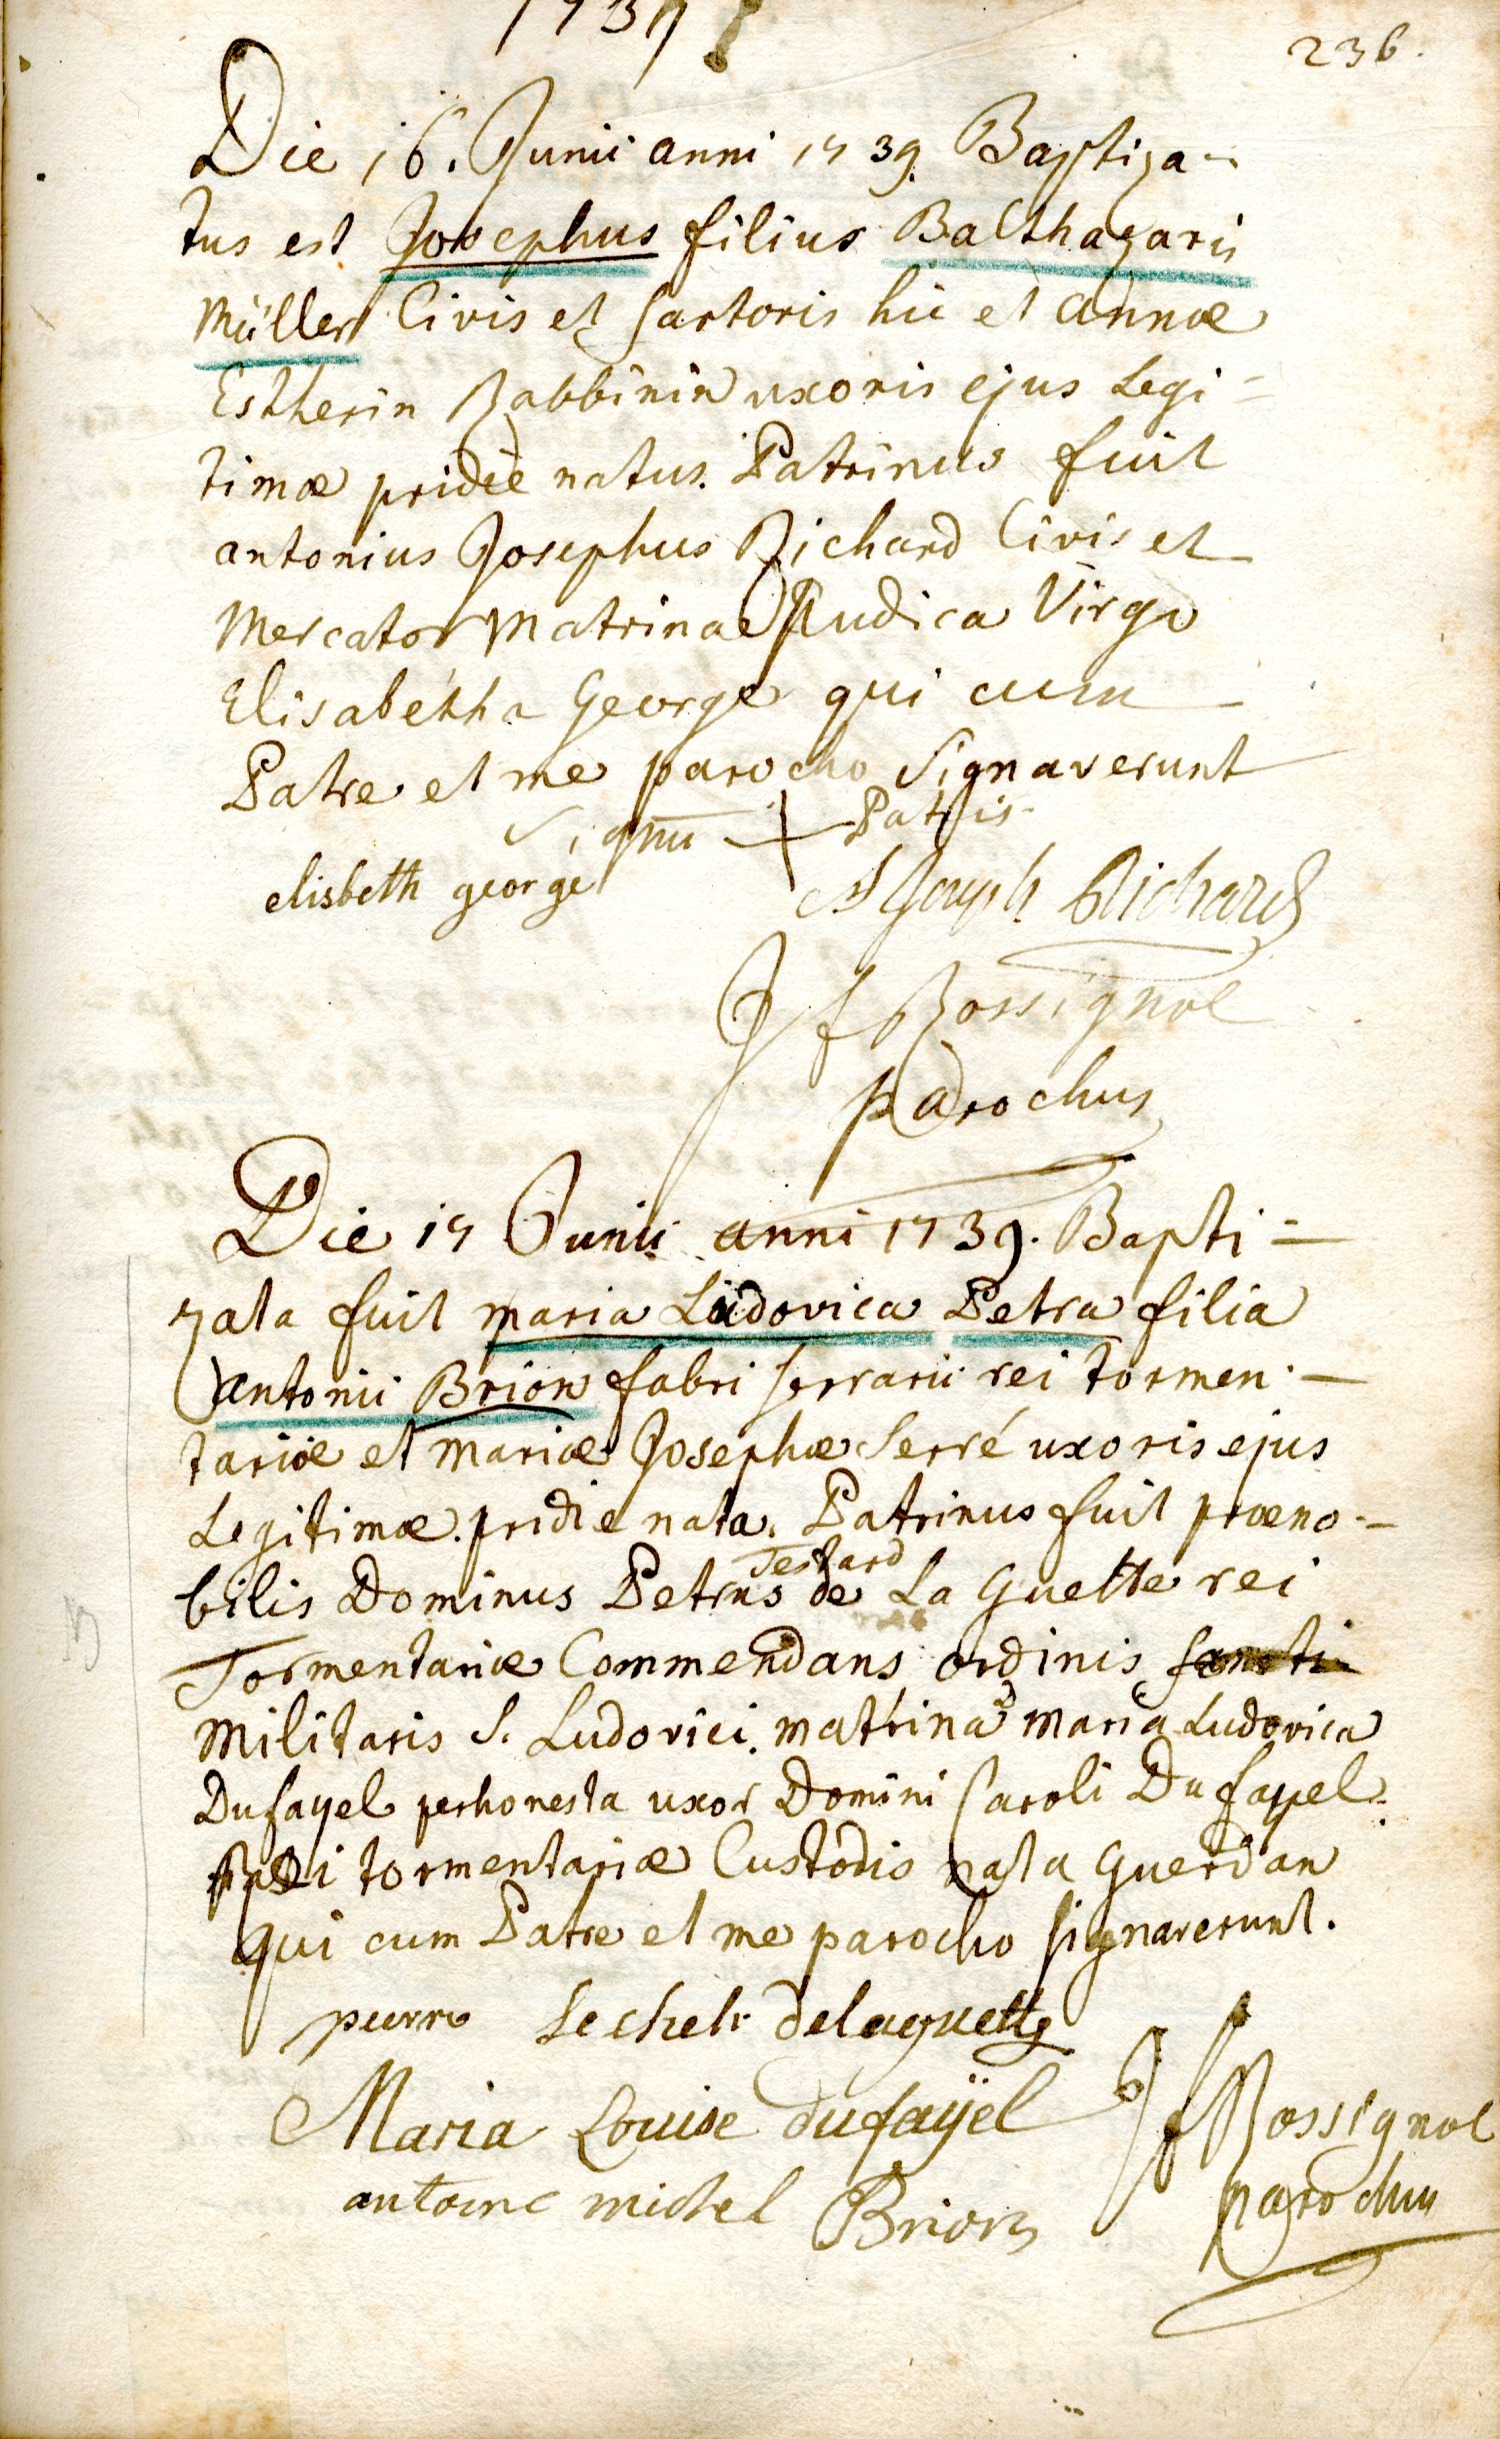 1739
236.
Die 16. Junii anni 1739. Baptiza-
tus est Josephus filius Balthazaris
Müller Civis et sartoris hic et annæ
Estherin Rabbinin uxoris ejus Legi=
timæ pridie natus. Patrinus fuit
antonius Josephus Richard Civis et
Mercator Matrina Pudica Virgo
Elisabetha George qui cum
Patre et me parocho signaverunt
Signū + Patris
elisbeth george
A Joseph Richard
J f Rossignol
parochus
Die 17 Junii anni 1739. Bapti=
zata fuit maria Ludovica Petra filia
antonii Brion fabri serrarii rei tormen-
tariæ et mariæ Josephæ Serré uxoris ejus
Legitimæ. pridie nata. Patrinus fuit præno-
Testard
bilis Dominus Petrus de La Guette rei
Tormentariæ Commendans ordinis sancti
militaris S. Ludovici. matrina maria Ludovica
Dufayel perhonesta uxor Domini Caroli Dufayel
rei tormentariæ Custodis nata Guerdan
qui cum Patre et me parocho signaverunt.
pierre delaguette
Maria Louise dufaÿel
J f Rossignol
antoine michel Brion
parochus